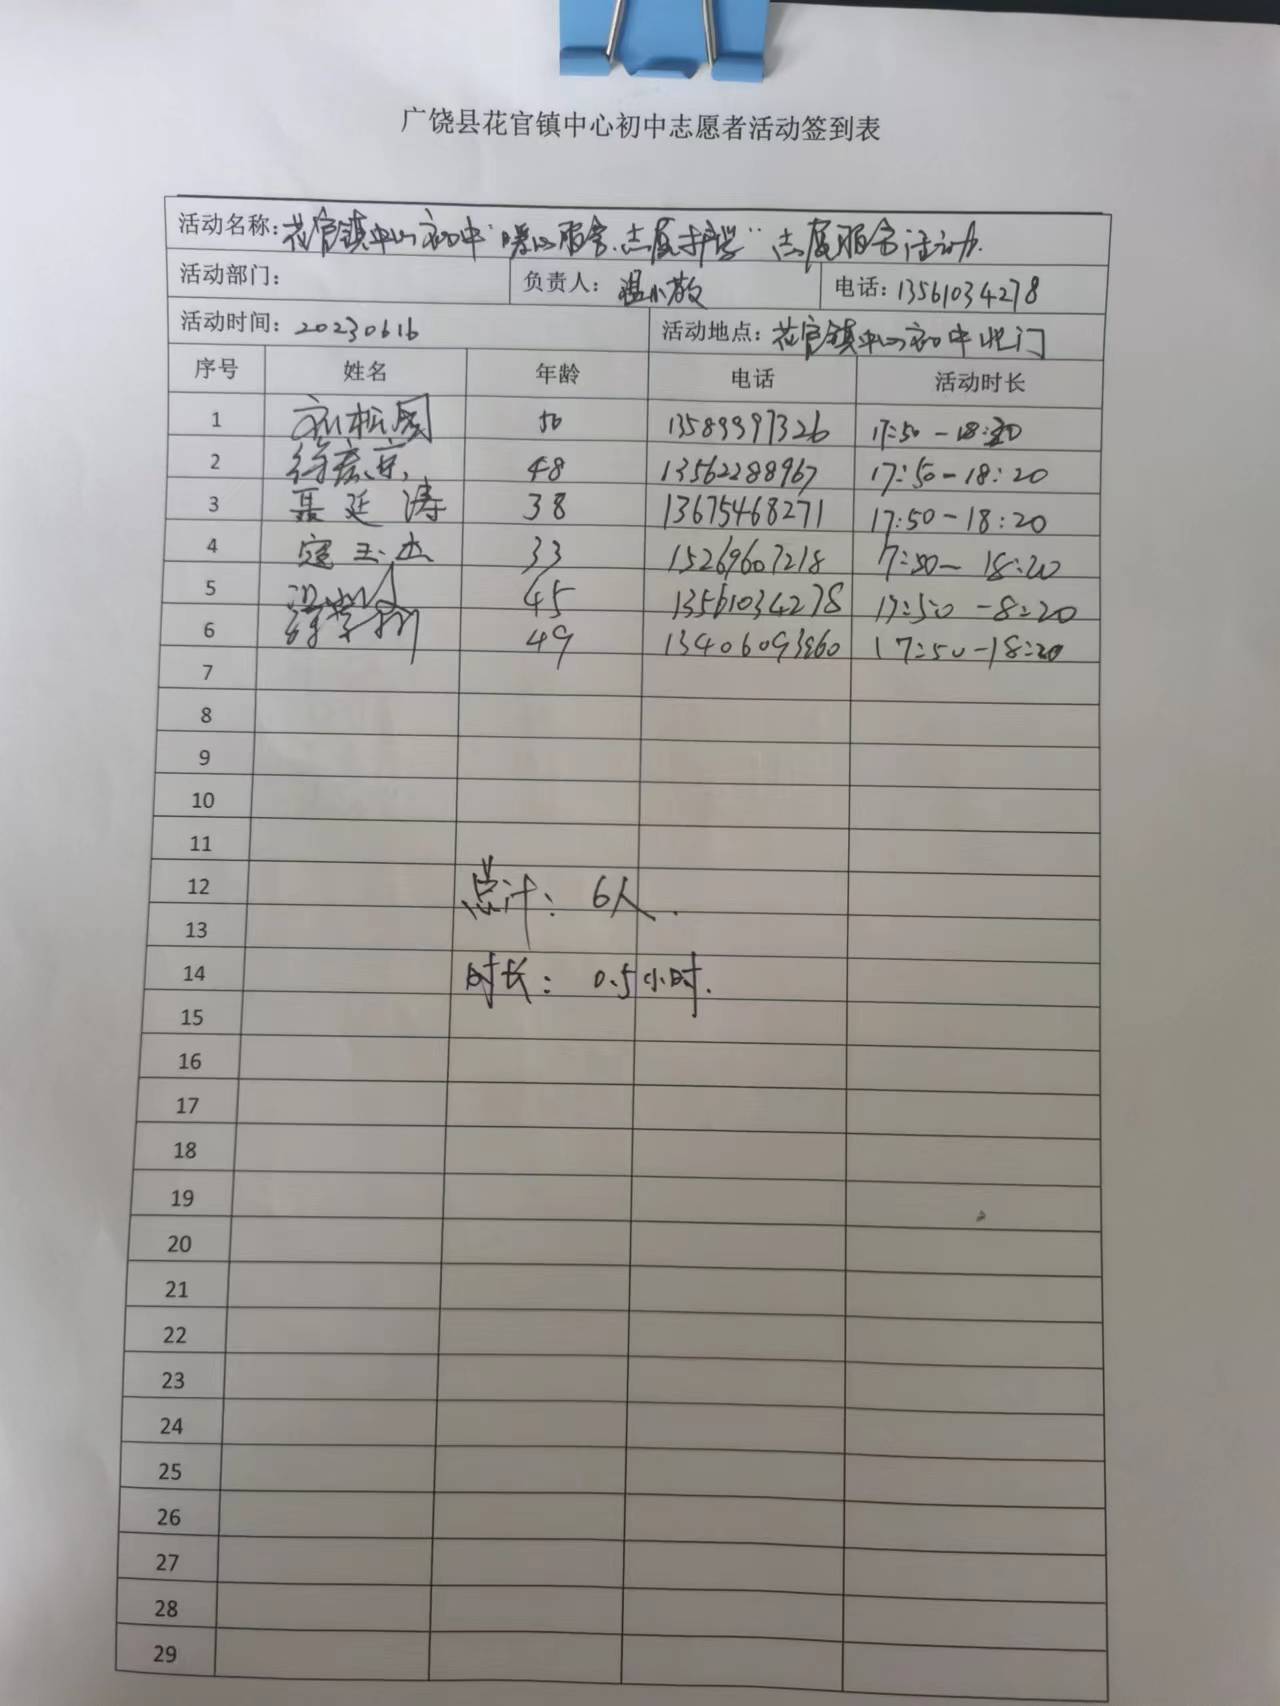 广饶县花官镇中心初中志愿者活动签到表
活动名称：花官镇中心初中"暖心服务.志愿护学"志愿服务活动.
活动部门： 负责人：温小敬 电话：13561034278
活动时间：20230616 活动地点：花官镇中心初中北门
序号 姓名 年龄 电话 活动时长
1 刘松园 50 13589997326 17:50-18:20
2 48 13562288967 17:50-18:20
3 聂延涛 38 13675468271 17:50-18:20
4 寇玉杰 33 15269607218 7:50-18:20
5 45 13561034278 17:50-8:20
6 49 13406093860 17:50-18:20
7
8
9
10
11
12 总计：6人.
13
14 时长：0.5小时.
15
16
17
18
19
20
21
22
23
24
25
26
27
28
29